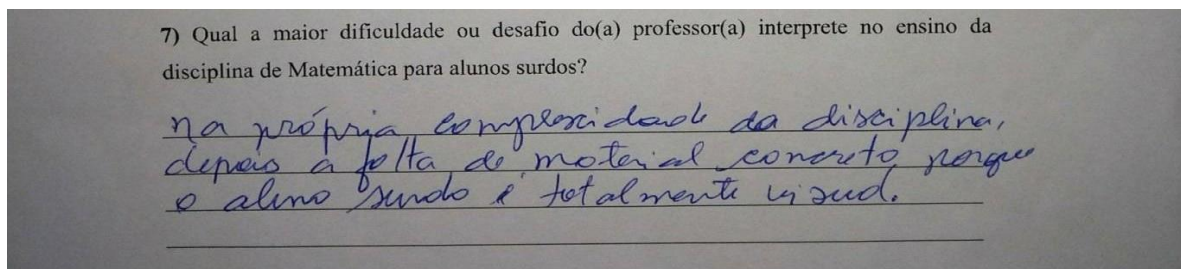 7) Qual a maior dificuldade ou desafio do(a) professor(a) interprete no ensino da
disciplina de Matemática para alunos surdos?
na própria complexidade da disciplina,
depois a falta de material concreto porque
o aluno surdo é totalmente visual.